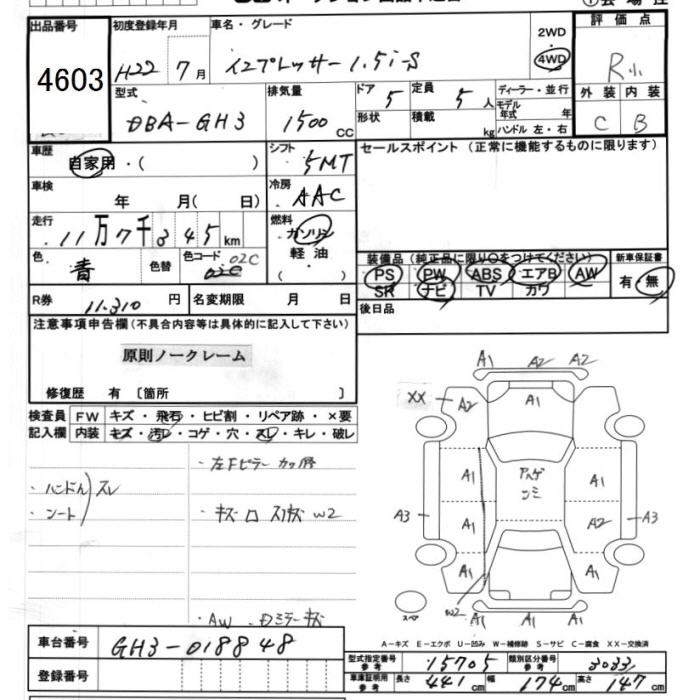 出品番号
4603
初度登録年月
H22 7月
車名・グレード
インプレッサー 1.5i-S
2WD
4WD
評価点
R小
外装 内装
C B
型式
DBA-GH3
排気量
1500 CC
ドア 5
形状
定員 5人
積載 kg
ディーラー・並行
モデル年式 年
ハンドル 左・右
車歴
自家用・( )
シフト
5MT
セールスポイント (正常に機能するものに限ります)
車検
年 月( 日)
冷房
AAC
走行
11万7千845km
燃料
ガソリン
軽油
・( )
色
青
色替
色コード 02C
装備品 (純正品に限り○をつけてください)
PS PW ABS エアB AW
SR ナビ TV カワ
新車保証書
有・無
R券 11.310 円
名変期限 月 日
後日品
注意事項申告欄 (不具合内容等は具体的に記入して下さい)
原則ノークレーム
修復歴 有 〔箇所 〕
検査員記入欄
FW キズ・飛石・ヒビ割・リペア跡・×要
内装 キズ・汚レ・コゲ・穴・スレ・キレ・破レ
・ハンドル スレ
・シート
・左Fピラー
W2
・AW ・Dミラーキズ
A1 A2 A2
XX A2 A1
A1 A1
A3 A1 A2 A3
A1 A1
W2 A1 A1 A1
スペア
A-キズ E-エクボ U-凹み W-補修跡 S-サビ C-腐食 XX-交換済
車台番号
GH3-018848
登録番号
型式指定番号 参考 15705
類別区分番号 参考 3033
車庫証明用 参考 長さ 441cm 幅 174cm 高さ 147cm